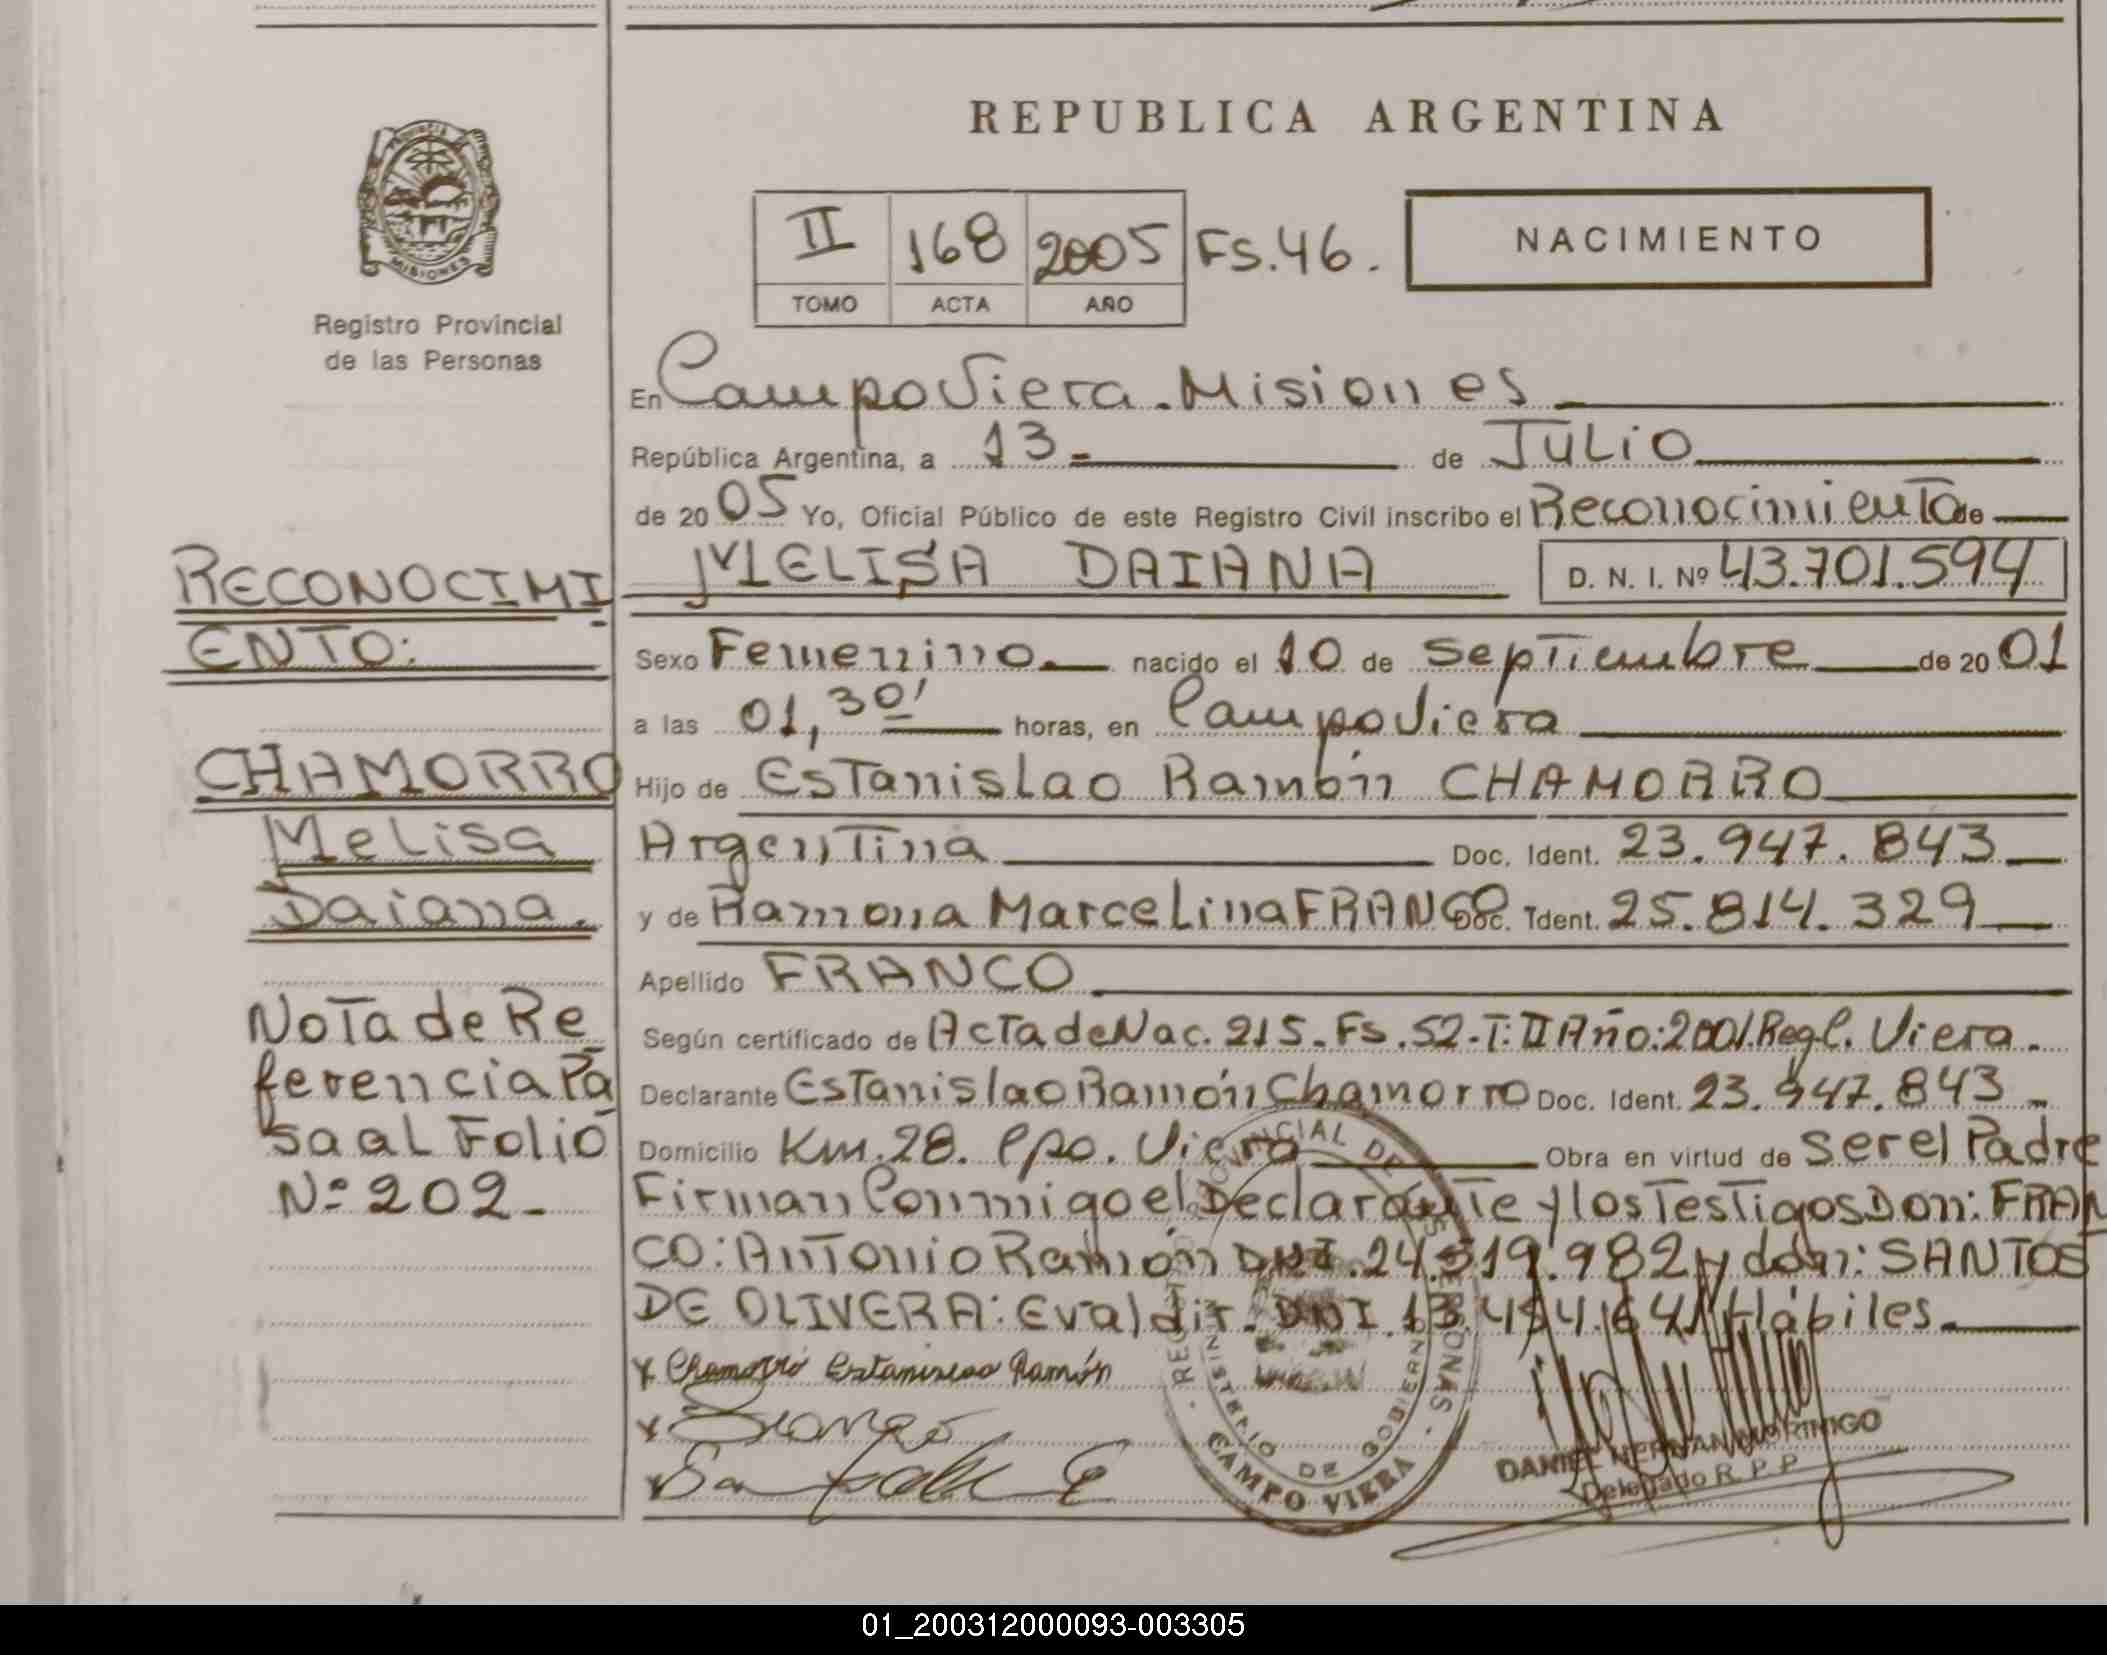 REPUBLICA ARGENTINA
PROVINCIA DE MISIONES
Registro Provincial
de las Personas
II 168 2005 Fs.46.
TOMO ACTA AÑO
NACIMIENTO
En Campo Viera. Misiones
República Argentina, a 13- de JULIO
de 2005 Yo, Oficial Público de este Registro Civil inscribo el Reconocimiento de
MELISA DAIANA D. N. I. Nº 43.701.594
Sexo Femenino. nacido el 10 de Septiembre de 2001
a las 01,30' horas, en Campo Viera
Hijo de Estanislao Ramón CHAMORRO
Argentina Doc. Ident. 23.947.843
y de Ramona Marcelina FRANCO Doc. Ident. 25.814.329
Apellido FRANCO
Según certificado de Acta de Nac. 215. Fs. 52-T: II Año: 2001. Reg. C. Viera.
Declarante Estanislao Ramón Chamorro Doc. Ident. 23.947.843-
Domicilio Km. 28. Cpo. Viera Obra en virtud de Ser el Padre
Firman Conmigo el Declarante y los Testigos Don: FRAN
CO: Antonio Ramón DNI. 24.519.982 y don: SANTOS
DE OLIVERA: Evaldir. DNI. 13.454.641 Hábiles.
x Chamorro Estanislao Ramón
x
x
RECONOCIMI
ENTO:
CHAMORRO
Melisa
Daiana.
Nota de Re
ferencia Pa
sa al Folio
Nº 202-
REGISTRO PROVINCIAL DE LAS PERSONAS
MINISTERIO DE GOBIERNO
CAMPO VIERA
DANIEL HERNAN MORINIGO
Delegado R. P. P.
01_200312000093-003305